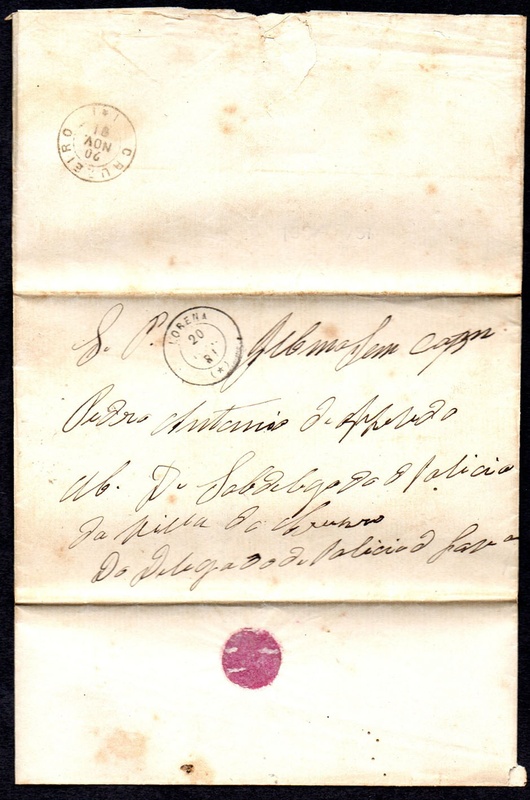 CRUZEIRO
20
NOV
81
LORENA
20
81
(*)
S. P.
Pedro Antonio de Azevedo
M. D. Subdelegado de Policia
da Villa do Cruzeiro
Do Delegado de Policia de